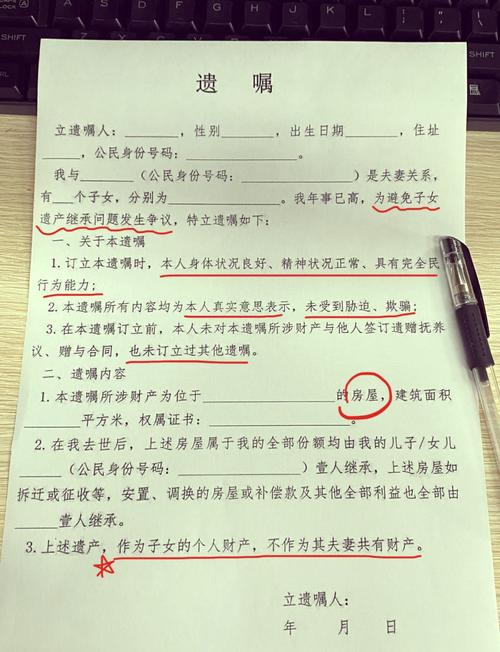 遗 嘱
立遗嘱人：_______，性别______，出生日期_______，住址
_____，公民身份号码：______________。
我与_______（公民身份号码：______________）是夫妻关系，
有___个子女，分别为______________。我年事已高，为避免子女
遗产继承问题发生争议，特立遗嘱如下：
一、关于本遗嘱
1.订立本遗嘱时，本人身体状况良好、精神状况正常、具有完全民
行为能力；
2.本遗嘱所有内容均为本人真实意思表示，未受到胁迫、欺骗；
3.在本遗嘱订立前，本人未对本遗嘱所涉财产与他人签订遗赠扶养
议、赠与合同，也未订立过其他遗嘱。
二、遗嘱内容
1.本遗嘱所涉财产为位于_________________的房屋，建筑面积
______平方米，权属证书：__________________。
2.在我去世后，上述房屋属于我的全部份额均由我的儿子/女儿
______（公民身份号码：________________）壹人继承，上述房屋如
拆迁或征收等，安置、调换的房屋或补偿款及其他全部利益也全部由
_______壹人继承。
3.上述遗产，作为子女的个人财产，不作为其夫妻共有财产。
立遗嘱人：
年 月 日
SHIFT